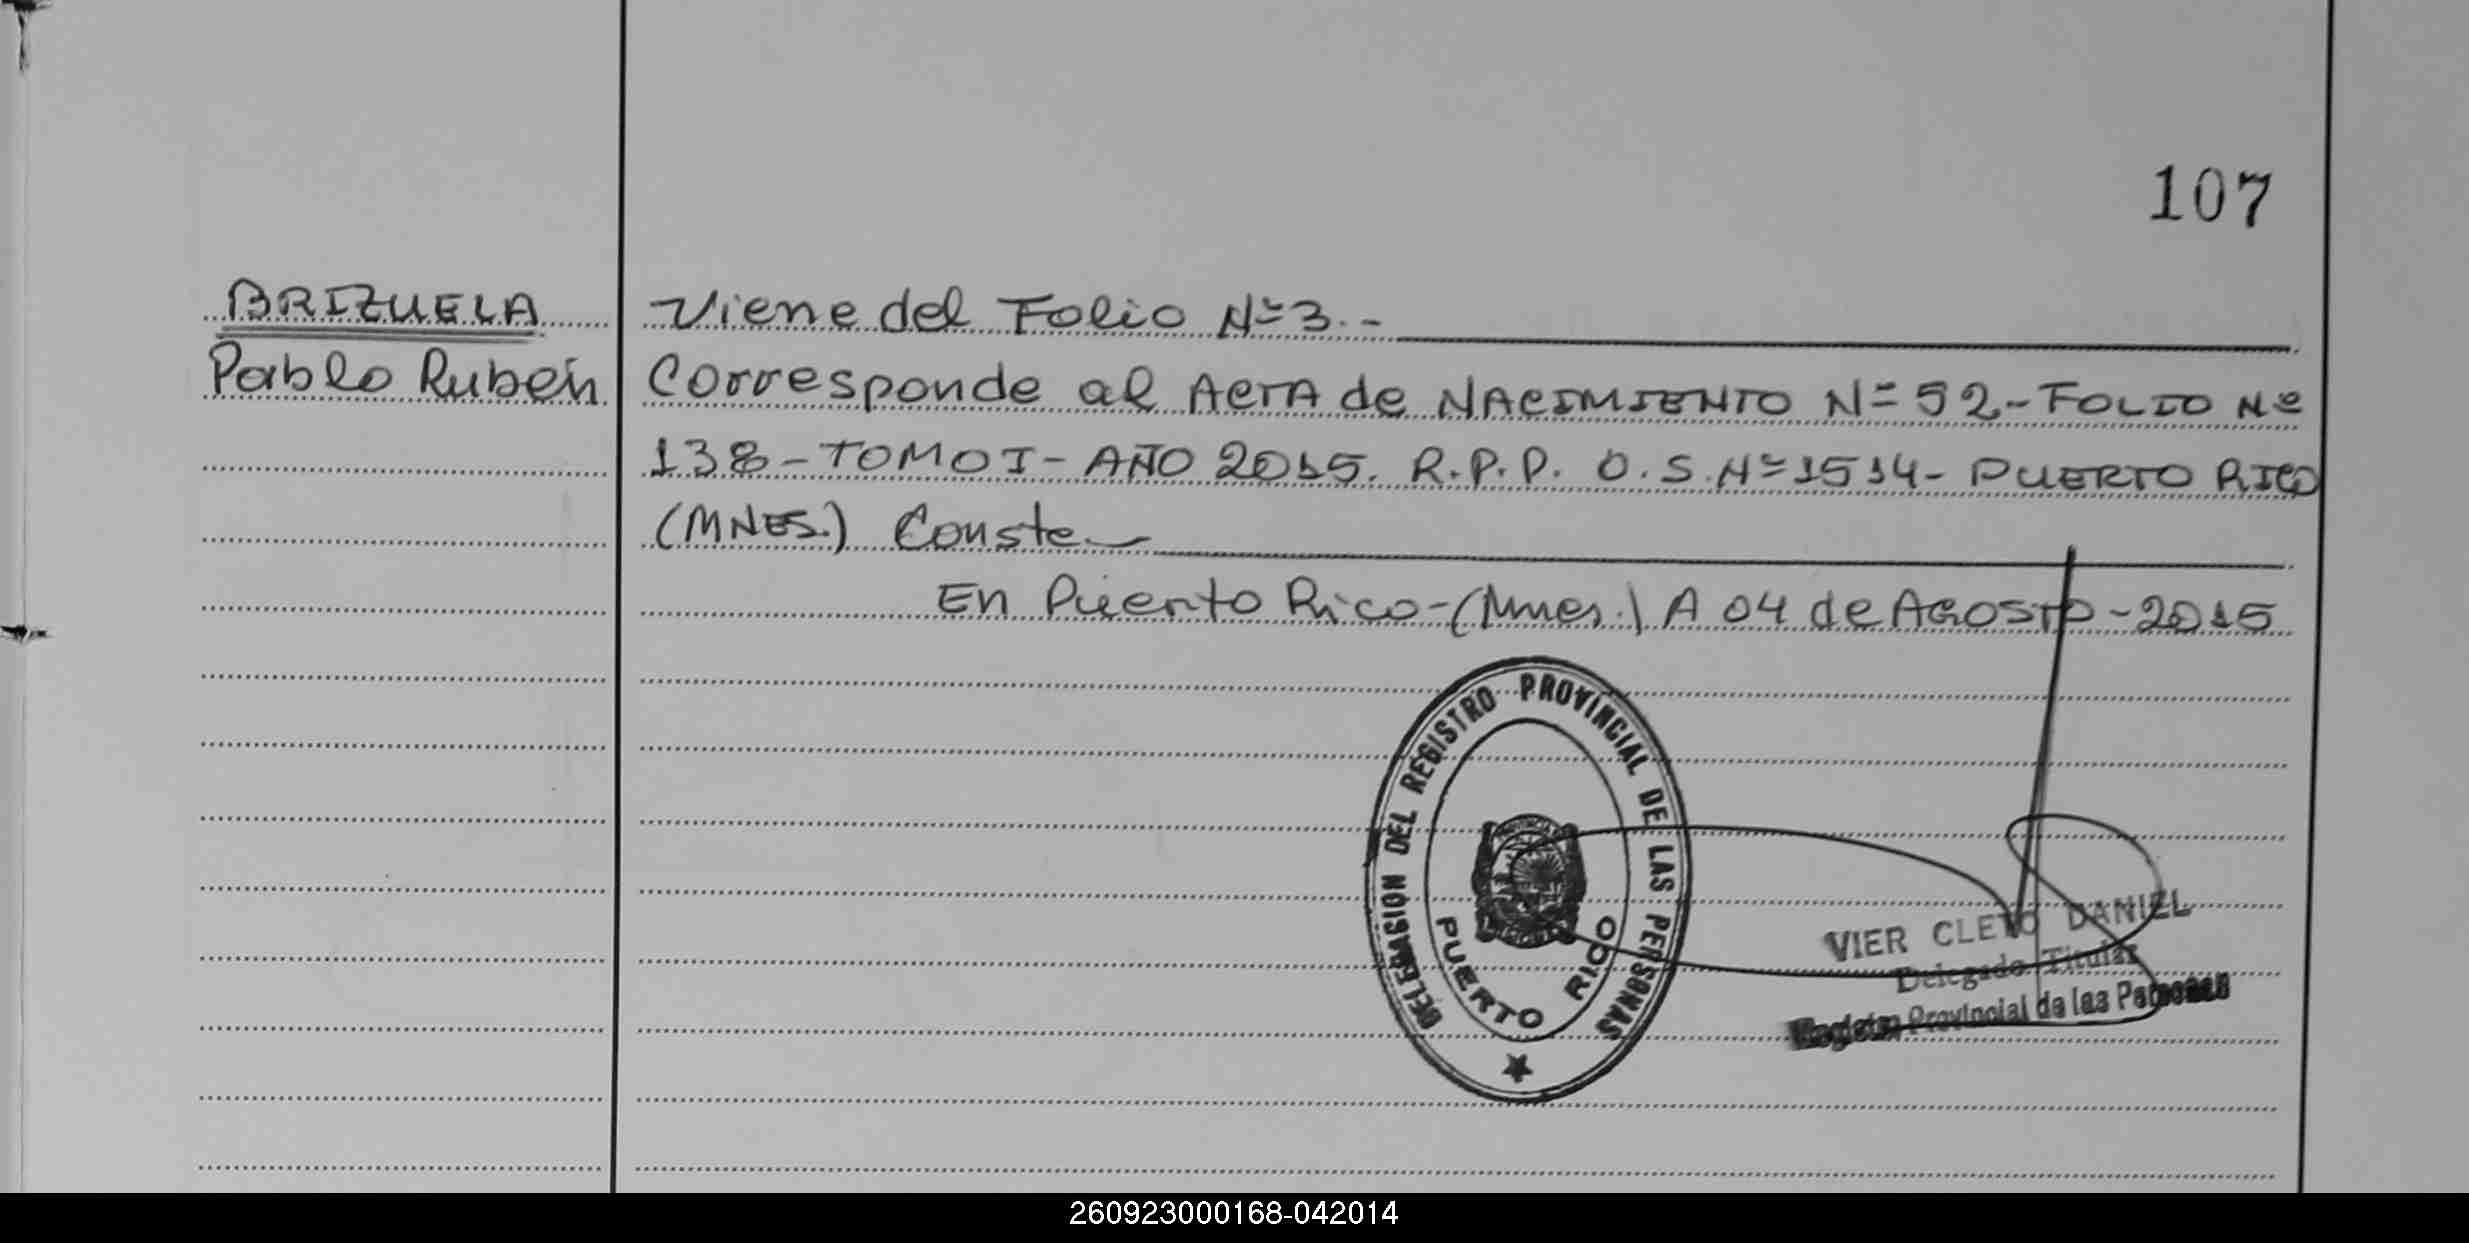 107
BRIZUELA
Pablo Rubén
Viene del Folio Nº 3.-
Corresponde al ACTA de NACIMIENTO Nº 52-FOLIO Nº
138-TOMO I-AÑO 2015. R.P.P. O.S. Nº 1514-PUERTO RICO
(MNES.) Conste
En Puerto Rico-(Mnes.) A 04 de AGOSTO-2015
DELEGACION DEL REGISTRO PROVINCIAL DE LAS PERSONAS
PUERTO RICO
VIER CLETO DANIEL
Delegado Titular
Registro Provincial de las Personas
260923000168-042014